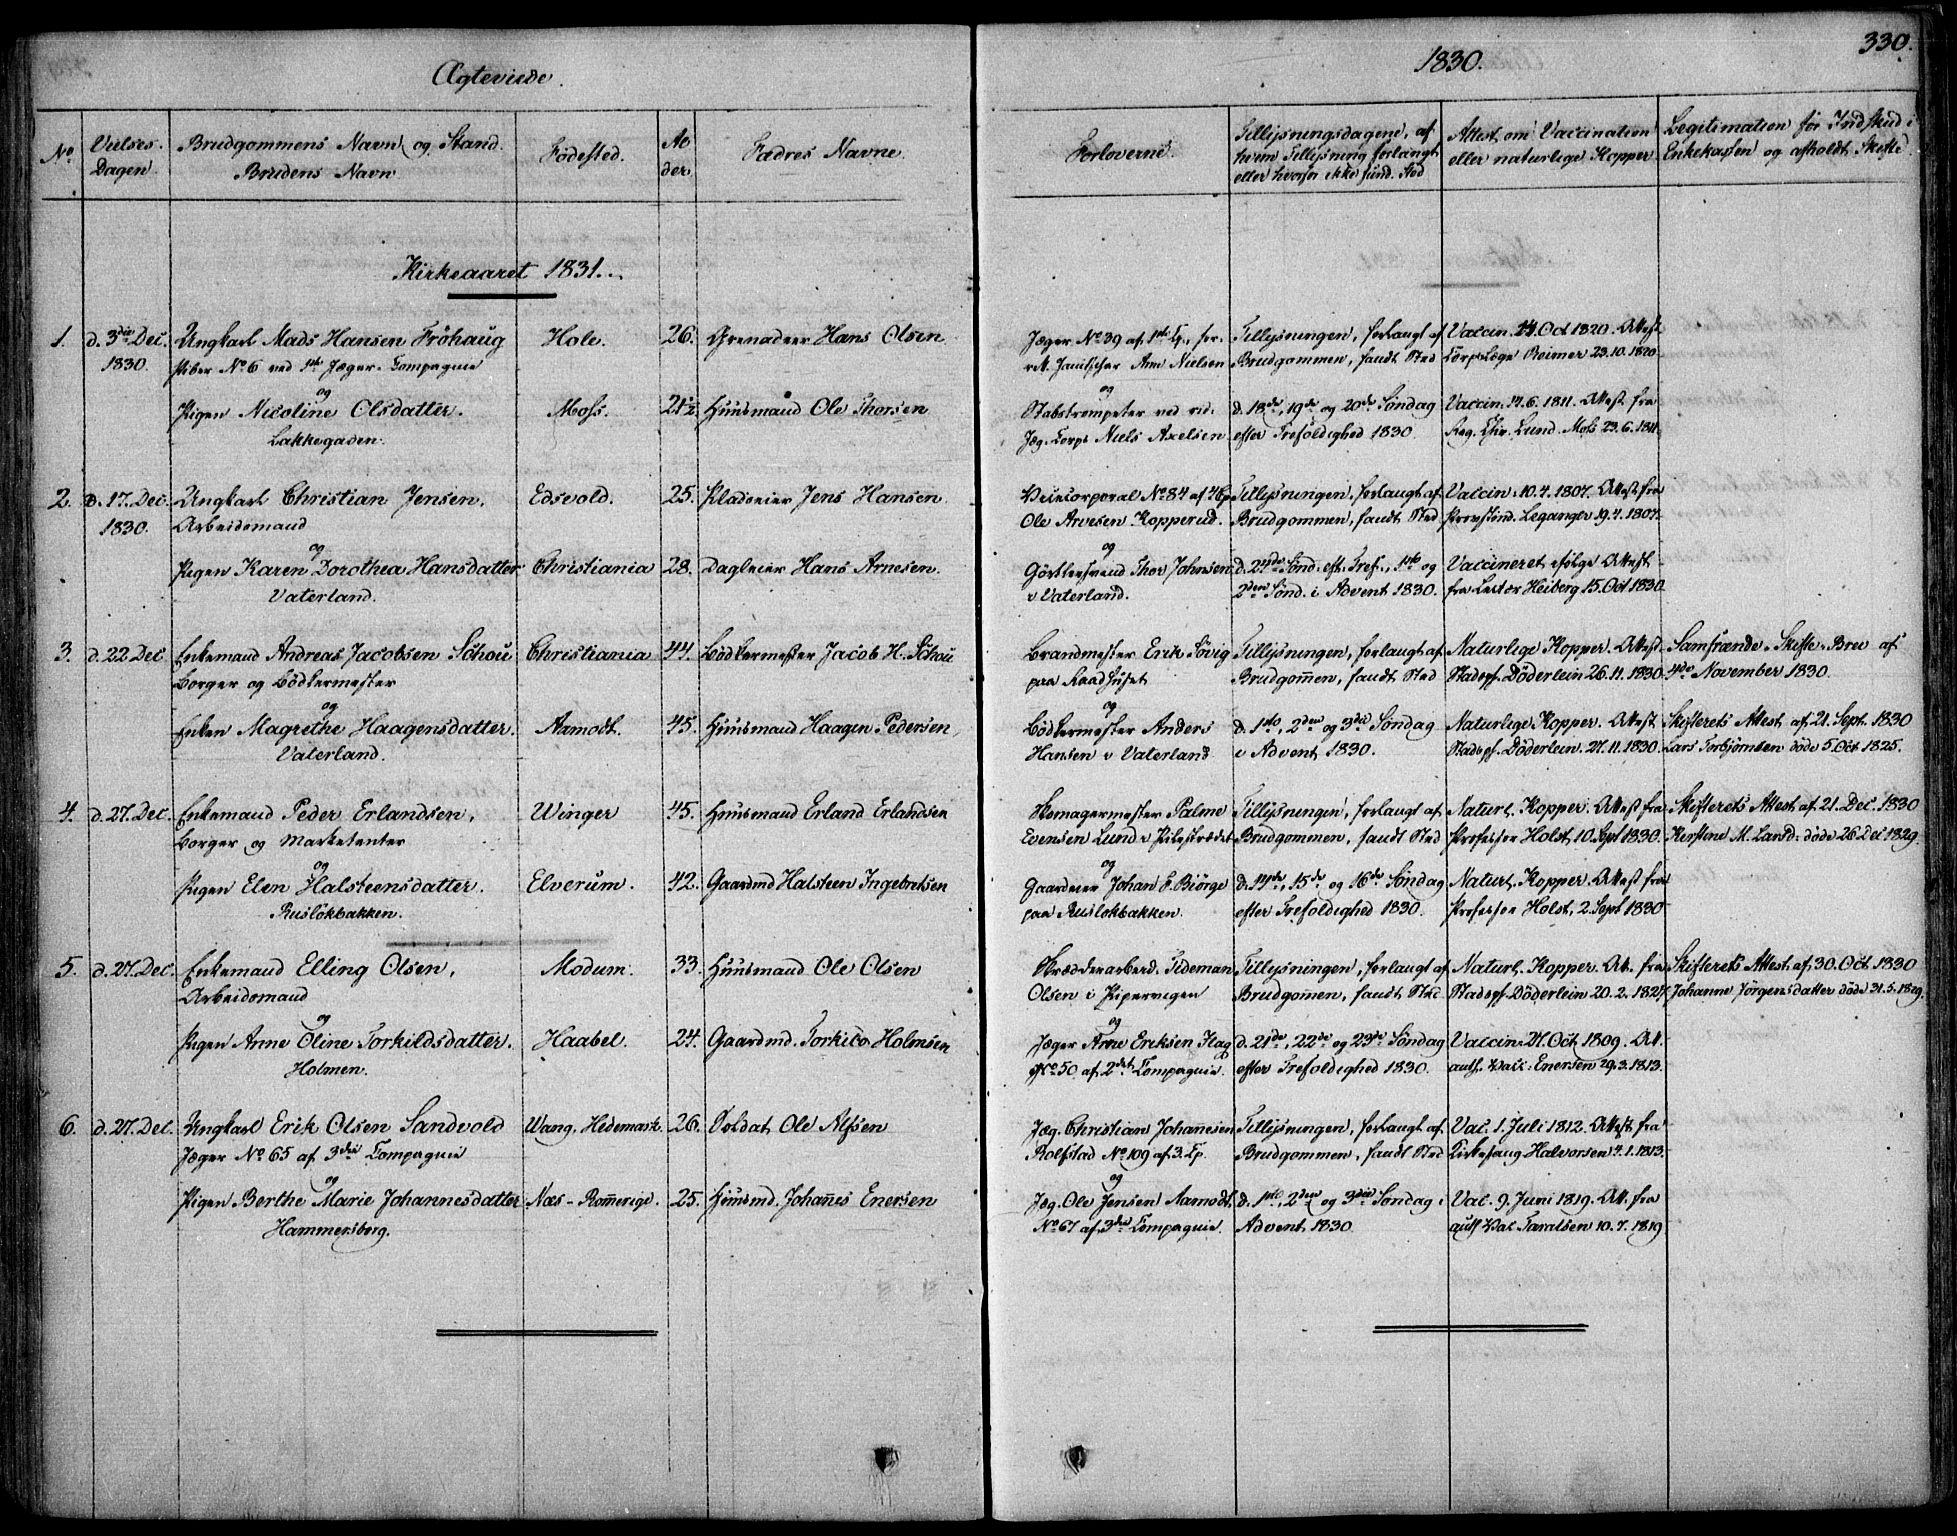 330.
Ægteviede.
1830.
No
Vielses-
Dagen
Brudgommens Navn og Stand.
Brudens Navn
Fødested.
Al-
der.
Fædres Navne.
Forloverne.
Tillysningsdagene, af
hvem Tillysning forlangt
eller hvorfor ikke fund. Sted
Attest om Vaccination
eller naturlige Kopper
Legitimation for Indskud i
Enkekassen og afholdt Skifte
Kirkeaaret 1831.
1. d. 3die Dec. Ungkarl Mads Hansen Fröhaug Hole. 26. Grenadeer Hans Olsen
1830. Piber No 6 ved 1ste Jæger-Compagnie
og
Pigen Nicoline Olsdatter. Moss. 21½ Huusmand Ole Thorsen
Lakkegaden.
Jæger No 39 af 1ste Cp., for- Tillysningen, forlangt af Vaccin. 14. Oct 1820. Attest
Janitschar Arn Nielsen Brudgommen, fandt Sted Corps-Læge Reimer 23.10.1820
og
Stabstrompeter ved rid. d. 18de, 19de og 20de Söndag Vaccin. 14.6.1811. Attest fra
Jæg. Corps Niels Axelsen efter Trefoldighed 1830. Reg. Chir. Lund. Moss 23.6.1811.
2. D. 17. Dec. Ungkarl Christian Jensen. Edsvold. 25. Pladseier Jens Hansen.
1830. Arbeidsmand
og
Pigen Karen Dorothea Hansdatter Christiania 28. Dagleier Hans Arnesen.
Vaterland.
Vicecorporal No 84 af 4 Cp Tillysningen, forlangt af Vaccin. 10.4.1807. Attest fra
Ole Arvesen Kopperud. Brudgommen, fandt Sted Provstind. Leganger 19.4.1807.
og
Görtlersvend Thor Johnsen d. 22nde Sönd. eft. Tref., 1ste og Vaccineret ifölge Attest
i Vaterland. 2den Sönd. i Advent 1830. fra Lector Heiberg 15. Oct 1830.
3. d. 22 Dec Enkemand Andreas Jacobsen Schou Christiania 44. Bödkermester Jacob H. Schou
Borger og Bödkermester
og
Enken Magrethe Haagensdatter. Aamodt. 45. Huusmand Haagen Pedersen
Vaterland.
Brandmester Erik Sövig Tillysningen, forlangt af Naturlige Kopper. Attest Samfrænde-Skifte-Brev af
paa Raadhuset Brudgommen, fandt Sted Stadsph. Döderlein 26.11.1830 4de November 1830.
og
Bödkermester Anders d. 1ste, 2den og 3die Söndag Naturlige Kopper. Attest Skifterets Attest af 21. Sept. 1830
Hansen i Vaterland i Advent 1830. Stadsph. Döderlein. 27.11.1830. Lars Torbjørnsen döde 5. Oct 1825.
4. d. 27. Dec. Enkemand Peder Erlandsen, Winger 45. Huusmand Erland Erlandsen
Borger og Marketenter
og
Pigen Elen Halsteensdatter. Elverum. 42. Gaardmd Halsteen Ingebretsen
Ruslökbakken.
Skomagermester Palme Tillysningen, forlangt af Naturl. Kopper. Attest fra Skifterets Attest af 21. Dec. 1830
Evensen Lund i Pilestrædet Brudgommen, fandt Sted Professor Holst, 10. Sept 1830. Kerstine M. Larsd. döde 26 Dec 1829.
og
Gaardeier Johan F. Biörge d. 14de, 15de og 16de Söndag Naturl. Kopper. Attest fra
paa Ruslökbakken. efter Trefoldighed 1830. Professor Holst, 2. Sept 1830
5. d. 27. Dec. Enkemand Elling Olsen, Modum. 33. Huusmand Ole Olsen
Arbeidsmand
og
Pigen Anne Oline Torkildsdatter. Haabel. 24. Gaardmd. Torkild Holmsen
Holmen.
Skræderarbeid. Tideman Tillysningen, forlangt af Naturl. Kopper. Att. fra Skifterets Attest af 30. Oct 1830
Olsen i Pipervigen Brudgommen, fandt Sted Stadsph. Döderlein 20.2.1827. Johanne Jörgensdatter döde 31.5.1829.
og
Jæger Arne Eriksen Flag d. 21de, 22de og 23de Söndag Vaccin. 27. Oct 1809. Att.
No 50 af 2det Compagnie. efter Trefoldighed 1830. auth. Vacc: Enersen 29.3.1813.
6. d. 27. Dec. Ungkarl Erik Olsen Sandvold Wang, Hedemark. 26. Soldat Ole Alfsen
Jæger No 65 af 3die Compagnie
og
Pigen Berthe Marie Johannesdatter Næs - Romerige. 25. Huusmd. Johannes Enersen
Hammersborg.
Jæg. Christian Johanesen Tillysningen, forlangt af Vac. 1. Juli 1812. Attest fra
Rolfstad No 109 af 3. Cp. Brudgommen, fandt Sted Kirkesang. Halvorsen 4.1.1813.
og
Jæg. Ole Jensen Aamodt d. 1ste, 2den og 3die Söndag i Vac. 9. Juni 1819. Att. fra
No 67 af 3die Compagnie. Advent 1830. auth Vac Taraldsen 10.7.1819